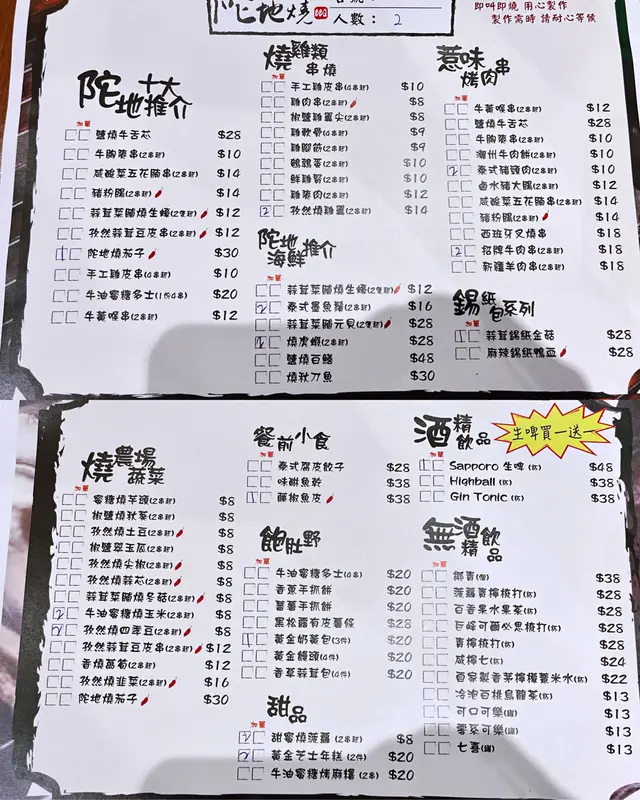 陀地燒
人數： 2
即叫即燒 用心製作
製作需時 請耐心等候
陀地十大推介
加單
鹽燒牛舌芯 $28
牛胸爽串(2串起) $10
咸酸菜五花腩串(2串起) $14
豬粉腸(2串起) $14
蒜茸菜脯燒生蠔(2隻起) $12
孜然蒜茸豆皮串(2串起) $12
1 陀地燒茄子 $30
手工雞皮串(4串起) $10
牛油蜜糖多士(1份4串) $20
牛黃喉串(2串起) $12
燒雞類串燒
加單
手工雞皮串(4串起) $10
雞肉串(2串起) $8
椒鹽雞尖(2串起) $8
雞軟骨(2串起) $9
雞腳筋(2串起) $9
鵪鶉蛋(2串起) $10
鮮雞腎(2串起) $10
雞爽肉(2串起) $12
2 孜然燒雞翼(2串起) $14
陀地海鮮推介
加單
蒜茸菜脯燒生蠔(2隻起) $12
2 泰式墨魚鬚(2串起) $16
蒜茸菜脯元貝(2隻起) $28
燒虎蝦(2串起) $28
鹽燒百鱔 $48
燒秋刀魚 $30
惹味烤肉串
加單
牛黃喉串(2串起) $12
鹽燒牛舌芯 $28
牛胸爽串(2串起) $10
潮州牛肉餅(2串起) $10
2 泰式豬頸肉(2串起) $10
鹵水豬大腸(2串起) $12
咸酸菜五花腩串(2串起) $14
豬粉腸(2串起) $14
西班牙叉燒串 $18
2 招牌牛肉串(2串起) $18
新疆羊肉串(2串起) $18
錫紙包系列
加單
1 蒜茸錫紙金菇 $28
麻辣錫紙鴨血 $28
燒農場蔬菜
加單
蜜糖燒芋頭(2串起) $8
椒鹽燒秋葵(2串起) $8
孜然燒土豆(2串起) $8
椒鹽翠玉瓜(2串起) $8
孜然燒尖椒(2串起) $8
孜然燒蒜芯(2串起) $8
蒜茸菜脯燒冬菇(2串起) $8
2 牛油蜜糖燒玉米(2串起) $8
2 孜然燒四季豆(2串起) $8
孜然蒜茸豆皮串(2串起) $12
香燒萵筍(2串起) $12
孜然燒韭菜(2串起) $16
陀地燒茄子 $30
餐前小食
加單
泰式腐皮餃子 $28
味醂魚乾 $38
1 藤椒魚皮 $38
飽肚野
加單
牛油蜜糖多士(4串) $20
香蔥手抓餅 $20
薑薑手抓餅 $20
黑松露有皮薯條 $28
1 黃金奶黃包(3件) $20
黃金饅頭(4件) $20
香草蒜茸包(4件) $20
甜品
加單
2 甜蜜燒菠蘿(2串起) $8
2 黃金芝士年糕(2件) $20
牛油蜜糖烤麻糬(2串) $20
酒精飲品
加單
生啤買一送一
1 Sapporo 生啤(杯) $48
Highball(杯) $38
Gin Tonic(杯) $38
無酒精飲品
加單
椰青(個) $38
菠蘿青檸梳打(杯) $28
百香果水果茶(杯) $28
巨峰可爾必思梳打(杯) $28
青檸梳打(杯) $28
咸檸七(杯) $24
自家製香茅檸檬薏米水(杯) $22
冷泡白桃烏龍茶(杯) $13
可口可樂(罐) $13
零系可樂(罐) $13
七喜(罐) $13